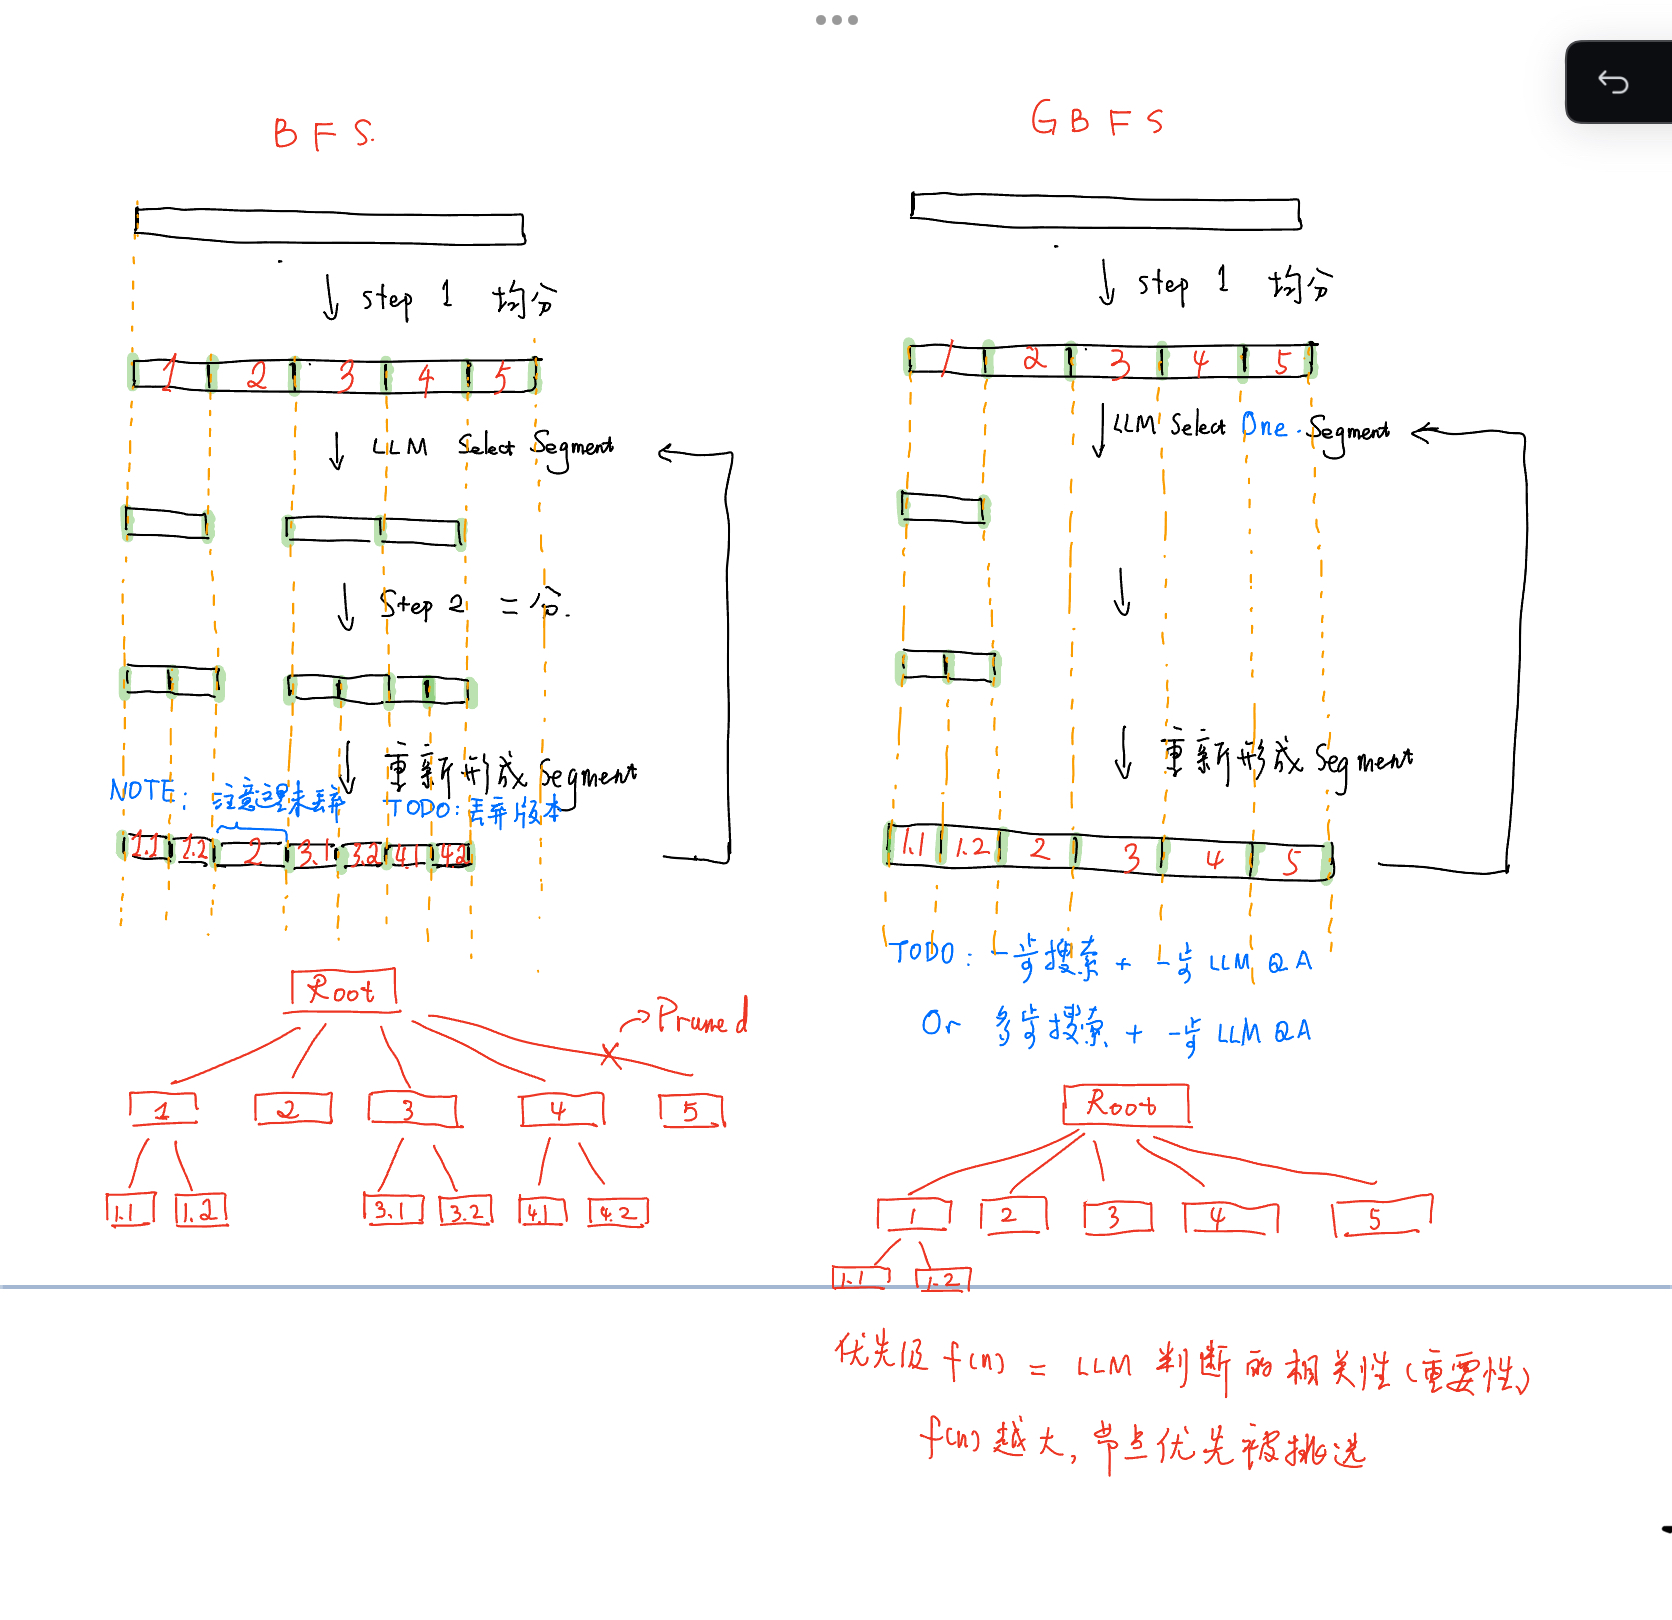 BFS.
↓ step 1 均分
1 2 3 4 5
↓ LLM Select Segment
↓ Step 2 二分.
↓ 重新形成 Segment
NOTE: 注意这里未丢弃 TODO: 丢弃版本
1.1 1.2 2 3.1 3.2 4.1 4.2
Root
Pruned
1 2 3 4 5
1.1 1.2 3.1 3.2 4.1 4.2
GBFS
↓ step 1 均分
1 2 3 4 5
↓ LLM Select One Segment
↓ 重新形成 Segment
1.1 1.2 2 3 4 5
TODO: 一步搜索 + 一步 LLM QA
Or 多步搜索 + 一步 LLM QA
Root
1 2 3 4 5
1.1 1.2
优先级 f(n) = LLM 判断的相关性(重要性)
f(n) 越大, 节点优先被挑选